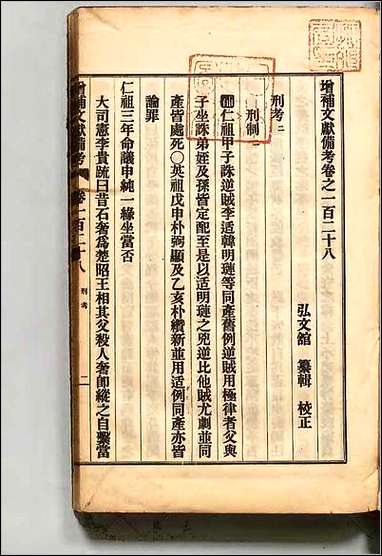 增補文獻備考卷之一百二十八
弘文館 纂輯 校正
刑考二
刑制二
補仁祖甲子誅逆賊李适韓明璉等同產舊例逆賊用極律者父與
子坐誅弟姪及孫皆定配至是以适明璉之兇逆比他賊尤劇並同
產皆處死○英祖戊申朴弼顯及乙亥朴纘新並用适例同產亦皆
論罪
仁祖三年命議申純一緣坐當否
大司憲李貴疏曰昔石奢為楚昭王相其父殺人奢卽縱之自繫當
增補文獻備考 卷一百二十八 刑考 一